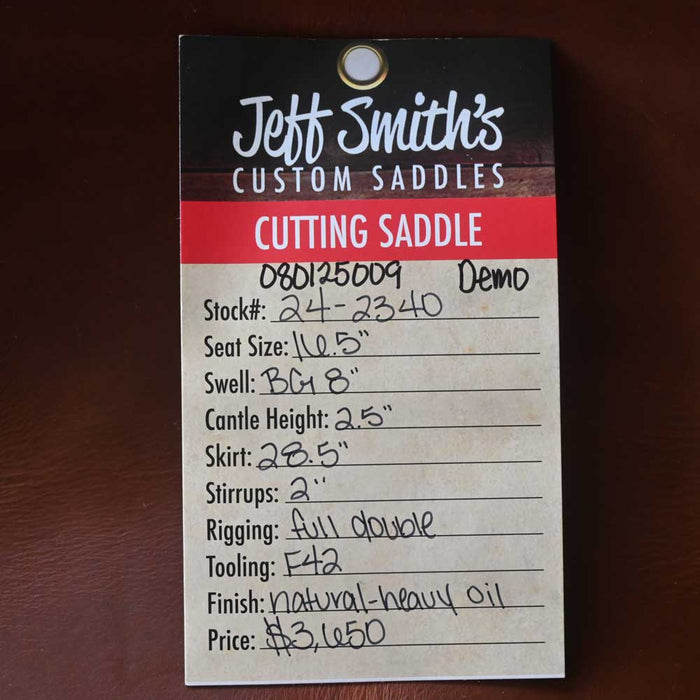 Jeff Smith's
CUSTOM SADDLES
CUTTING SADDLE
080125009 Demo
Stock#: 24-2340
Seat Size: 16.5"
Swell: BG 8"
Cantle Height: 2.5"
Skirt: 28.5"
Stirrups: 2"
Rigging: full double
Tooling: F42
Finish: natural-heavy oil
Price: $3,650